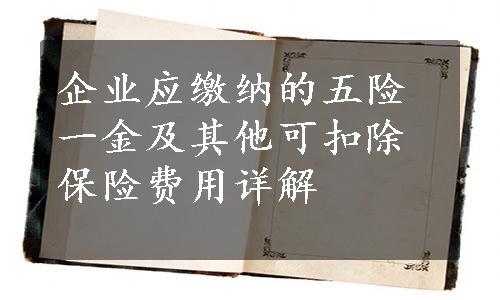 企业应缴纳的五险
一金及其他可扣除
保险费用详解